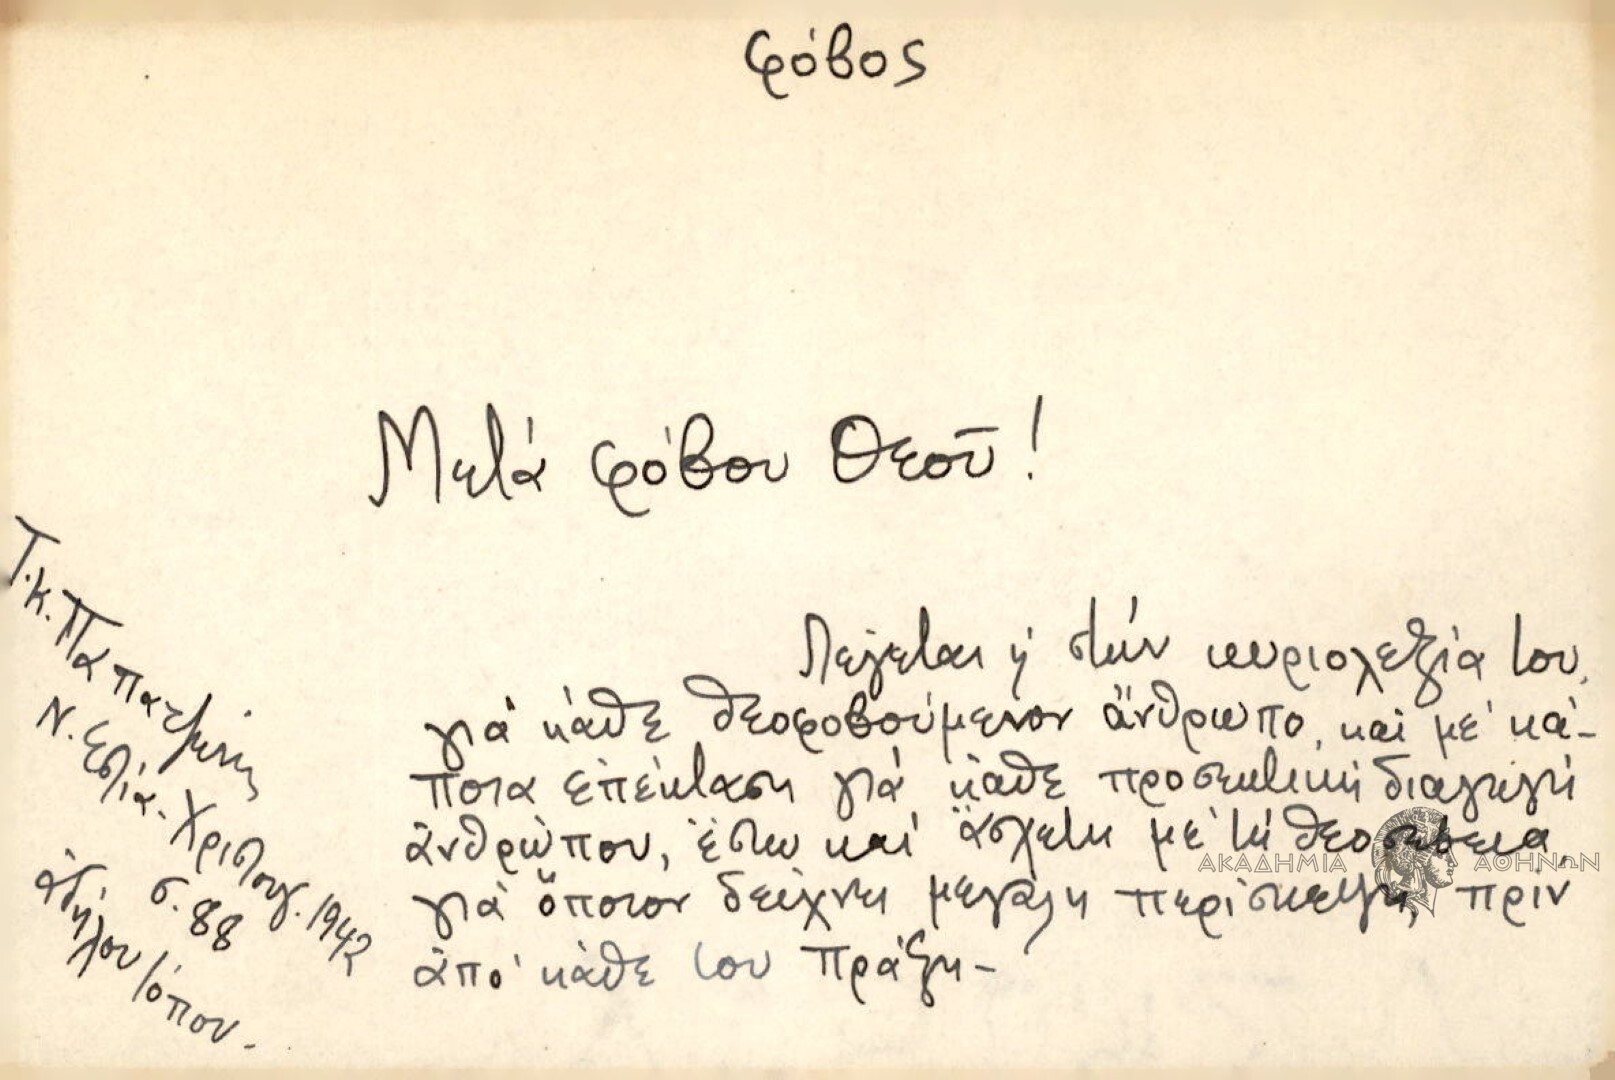 φόβος
Μετά φόβου Θεοῦ!
Λέγεται ἡ στήν κυριολεξία του,
γιά κάθε θεοφοβούμενον ἄνθρωπο, καί μέ κά-
ποια ἐπέκταση γιά κάθε προσεκτική διαγωγή
ἀνθρώπου, ἔστω καί ἄσχετη μέ τή θεοσέβεια,
γιά ὅποιον δείχνει μεγάλη περίσκεψη, πρίν
ἀπό κάθε του πράξη-
Τ.Κ. Παπατζώνης
Ν. Εστία. Χριστουγ. 1942
σ. 88
ἀδήλου τόπου-
ΑΚΑΔΗΜΙΑ ΑΘΗΝΩΝ